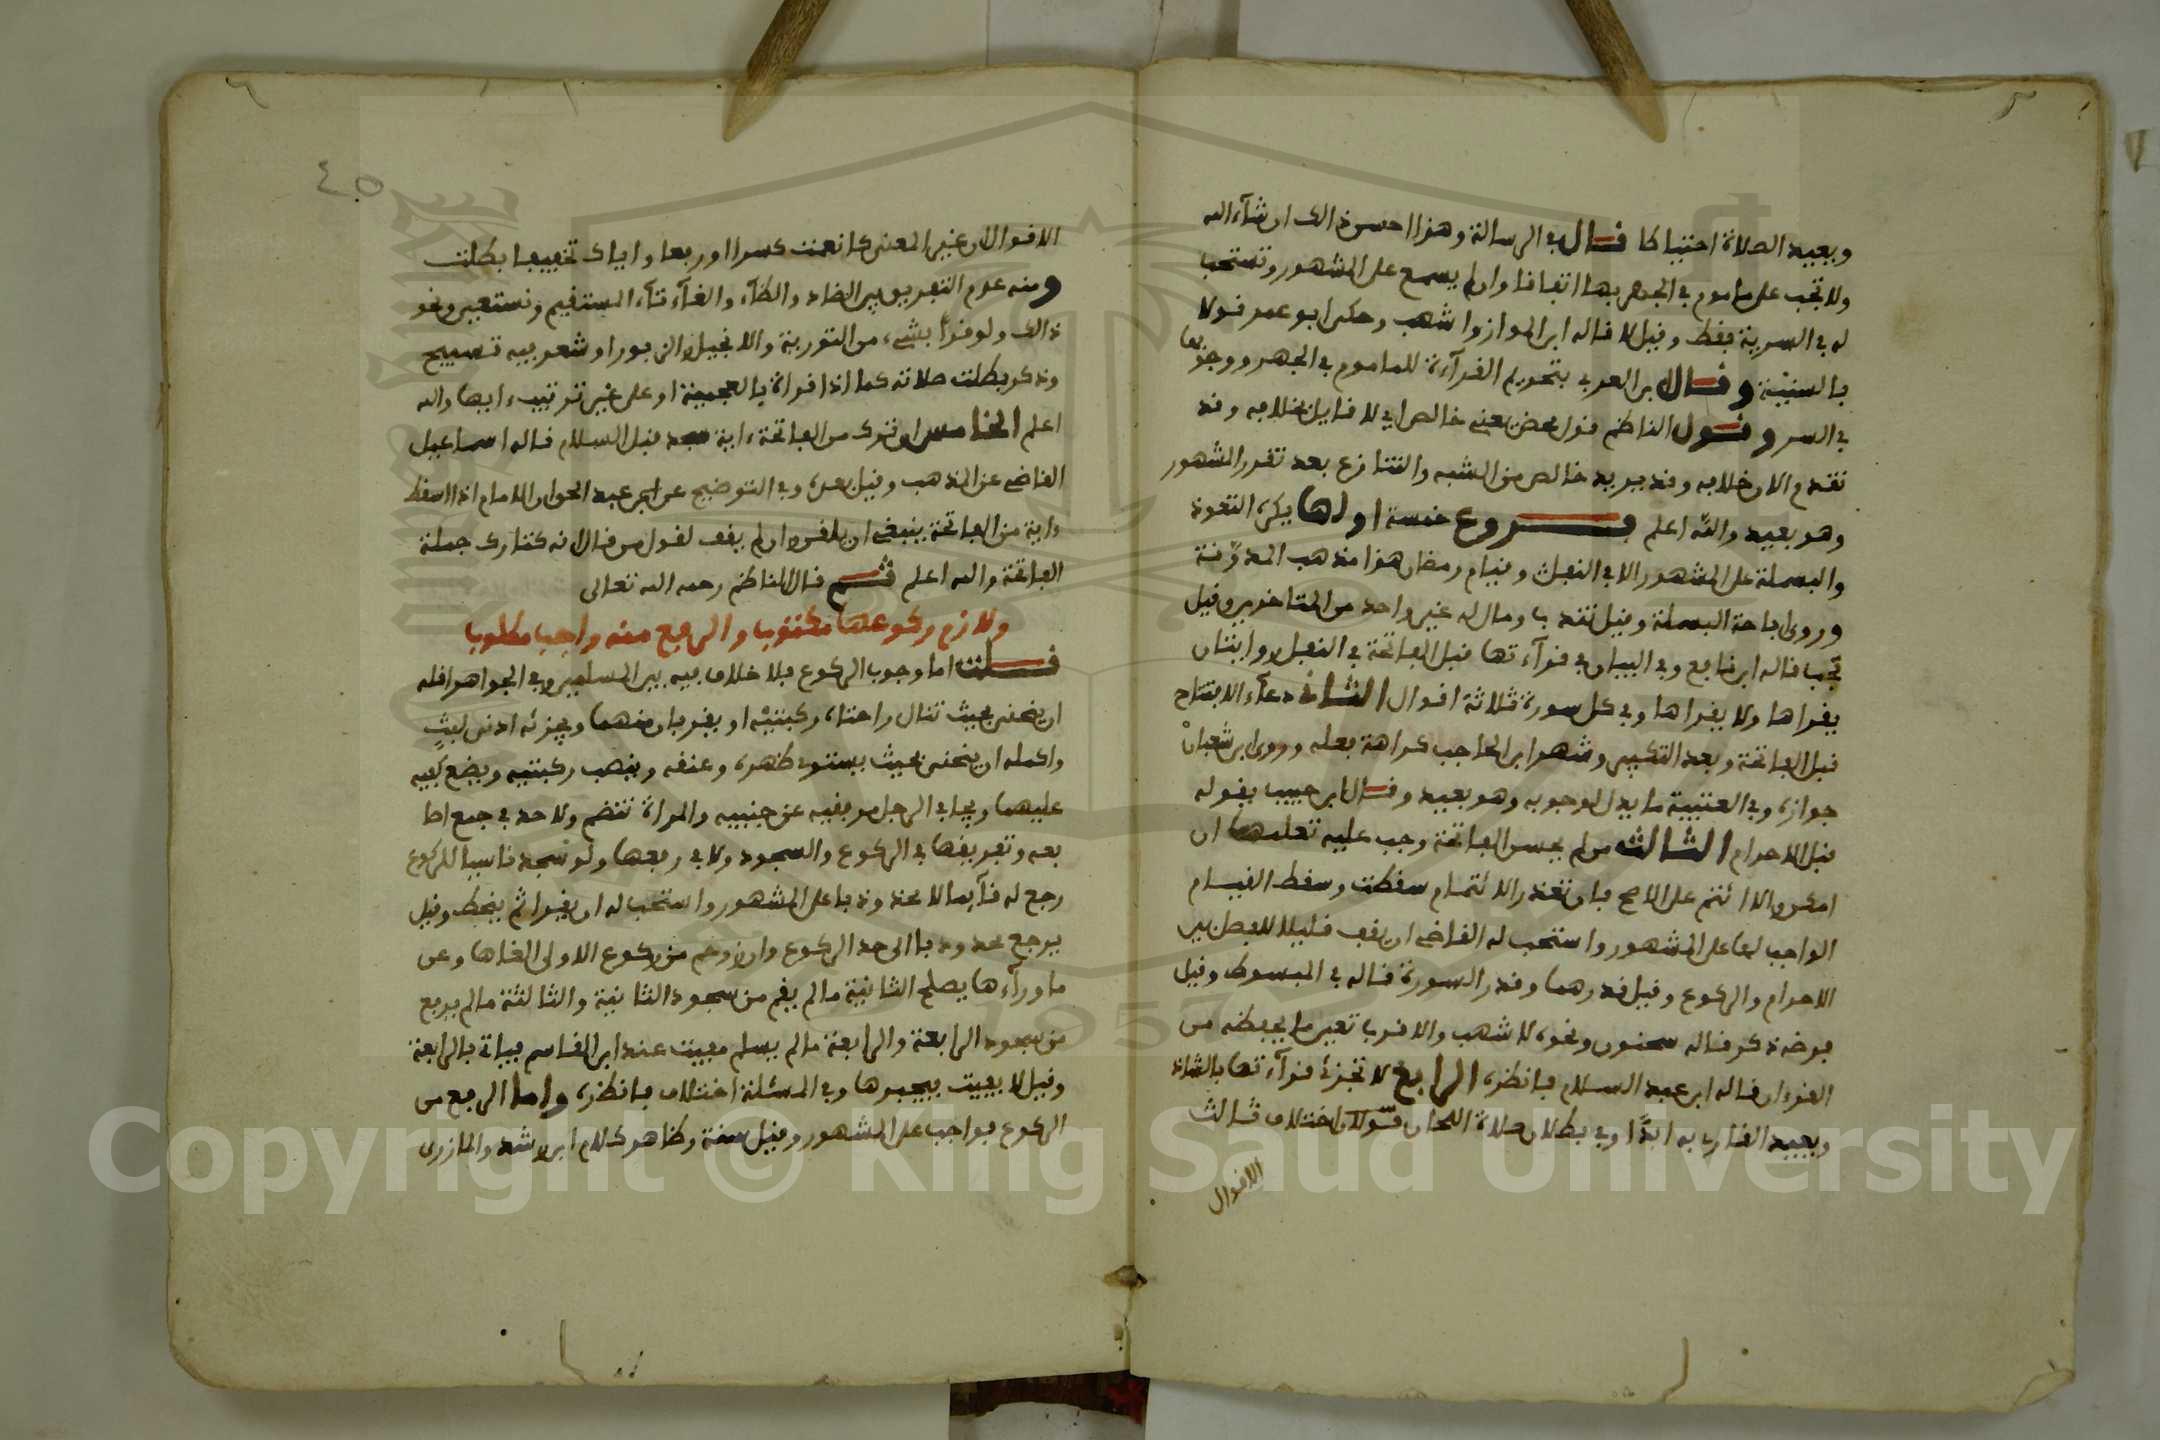 ويعيد الصلاة احتياطا قال في الرسالة وهذا احسن ذالك ان شآء الله
ولا تجب على ماموم في الجهر بها اتفاقا وان لم يسمع على المشهور وتستحب
له في السرية فقط وقيل لا قاله ابن المواز واشهب وحكى ابو عمر قولا
بالسنية وقال ابن العربي بتحريم القرآءة للماموم في الجهر ووجوبها
في السر وقول الناظم قول محض يعني خالص اي لا قايل بخلافه وقد
تقدم الان خلافه وقد يريد خالص من الشبه والتنازع بعد تقرر المشهور
وهو بعيد والله اعلم فروع خمسة اولها يكره التعوذ
والبسملة على المشهور الا في النفل وقيام رمضان هذا مذهب المدونة
وروي اباحة البسملة وقيل تندب ومال له غير واحد من المتاخرين وقيل
تجب قاله ابن نافع وفي البيان في قرآءتها قبل الفاتحة في النفل روايتان
يقراها ولا يقراها وفي كل سورة ثلاثة اقوال الثاني دعآء الافتتاح
قبل الفاتحة وبعد التكبير وشهر ابن الحاجب كراهة فعله وروى ابن شعبان
جوازه وفي العتبية ما يدل لوجوبه وهو بعيد وقال ابن حبيب يقوله
قبل الاحرام الثالث من لم يحسن الفاتحة وجب عليه تعلمها ان
امكن والا ائتم على الاصح فان تعذر الائتمام سقطت وسقط القيام
الواجب لها على المشهور واستحب له القاضي ان يقف قليلا للفصل بين
الاحرام والركوع وقيل قدرهما وقدر السورة قاله في المبسوط وقيل
فرضه ذكر قاله سحنون ونحوه لاشهب والاقرب تعين ما يحفظه من
القرءان قاله ابن عبد السلام فانظره الرابع لا تجزئ قرآءتها بالشاذ
ويعيد القارئ به ابدًا وفي بطلان صلاة اللحان قولان اختلاف ثالث
الاقوال
الاقوال ان غير المعنى كانعمت كسرا او رفعا واياك تخفيفا بطلت
ومنه عدم التفريق بين الضاد والظآء والقآء تآء المستقيم ونستعين ونحو
ذالك ولو قرأ بشيء من التورية والانجيل والزبور او شعر فيه تسبيح
وذكر بطلت صلاته كما اذا قراه بالعجمية او على غير ترتيب ايها والله
اعلم الخامس ان ترك من الفاتحة ءاية سجد قبل السلام قاله اسماعيل
القاضي عن المذهب وقيل بعده وفي التوضيح عن ابن عبد الحق ان الامام اذا اسقط
ءاية من الفاتحة ينبغي ان يلقن وان لم يقف لقول من قال انه كتارك جملة
الفاتحة والله اعلم ثم قال الناظم رحمه الله تعالى
ولازم ركوعها مكتوب والرفع منه واجب مطلوب
قلت اما وجوب الركوع فلا خلاف فيه بين المسلمين وفي الجواهر اقله
ان ينحني بحيث تنال راحتاه ركبتيه او يقربان منهما ويجزئه ادنى لبث
واكمله ان ينحني بحيث يستوي ظهره وعنقه وينصب ركبتيه ويضع كفيه
عليهما ويجافي الرجل مرفقيه عن جنبيه والمراة تنضم ولا حد في جمع اصا
بعه وتفريقها في الركوع والسجود ولا في رفعها ولو سجد ناسيا للركوع
رجع له قآيما لا محدودبا على المشهور واستحب له ان يقرا ثم ينحط وقيل
يرجع محدودبا الى حد الركوع وان زوحم من ركوع الاولى الغاها وعن
ما ورآءها يصلح الثانية ما لم يقم من سجود الثانية والثالثة ما لم يرفع
من سجود الرابعة والرابعة ما لم يسلم فيفيت عند ابن القاسم فياتي بالرابعة
وقيل لا يفيت فيجبرها وفي المسئلة اختلاف فانظره واما الرفع من
الركوع فواجب على المشهور وقيل سنة وظاهر كلام ابن رشد والمازري